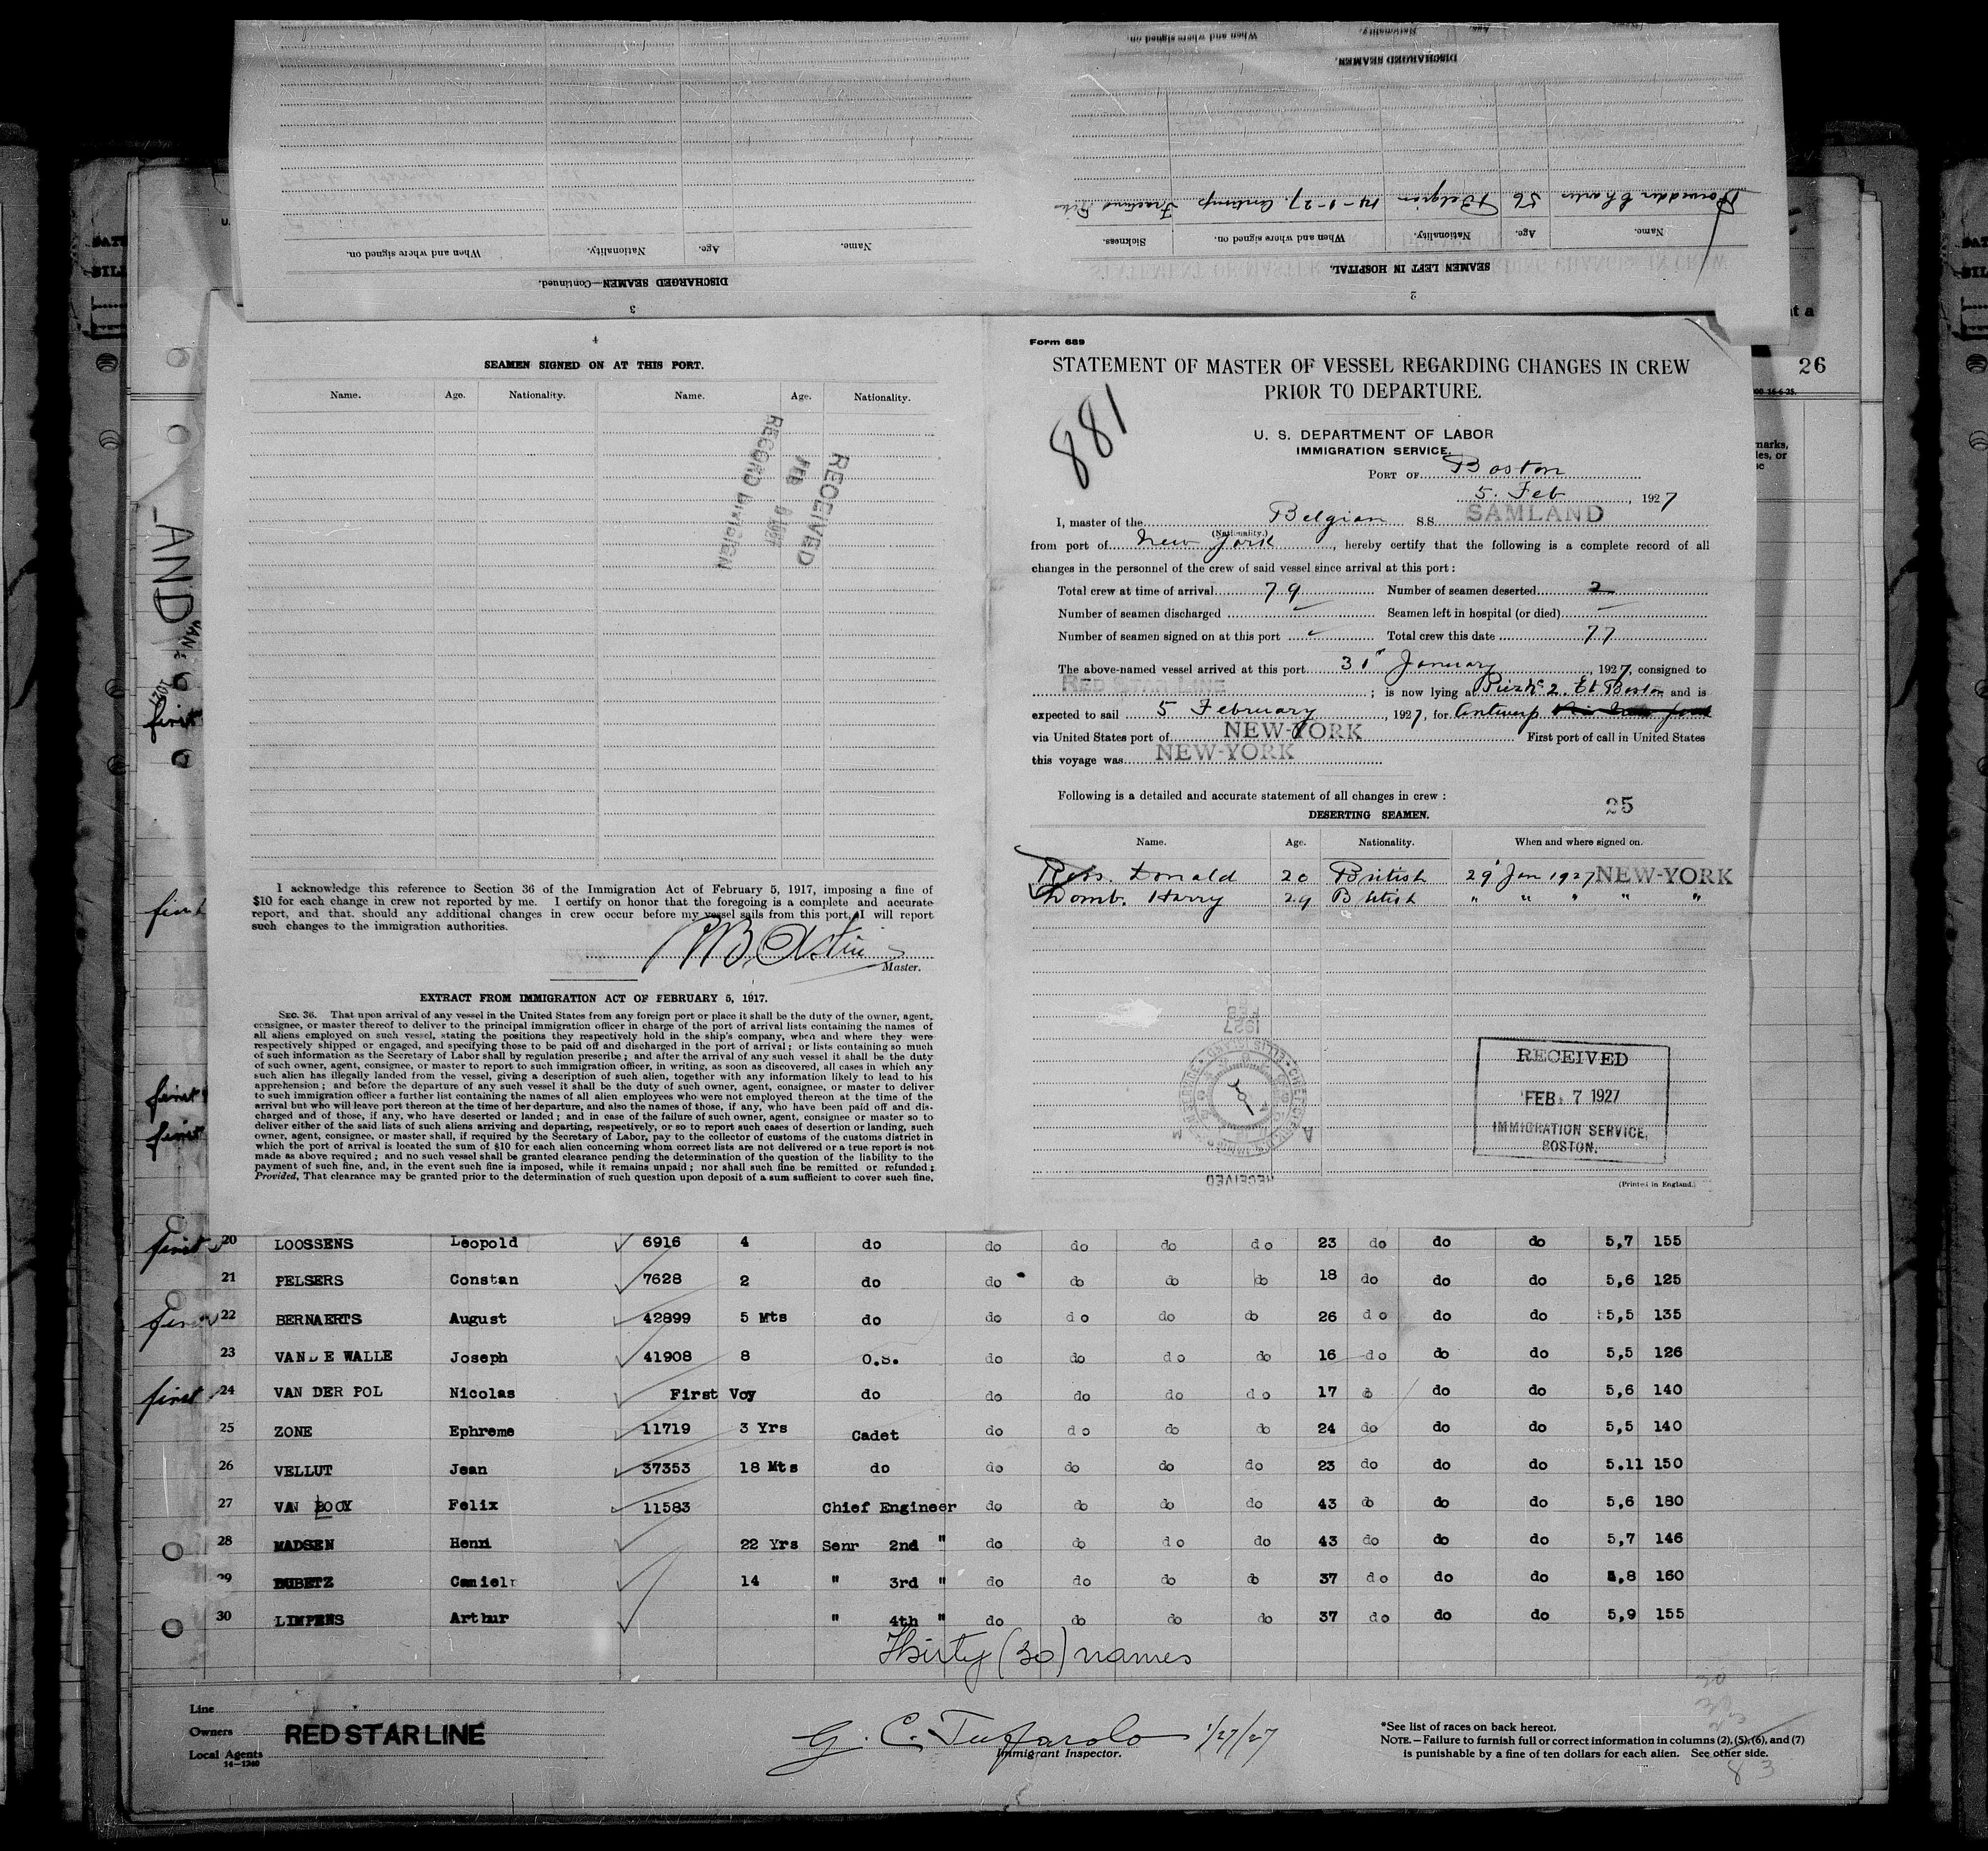 When and where signed on.
Nationality.
Age.
DISCHARGED SEAMEN.
Charles 56 Belgian 14-1-27 Antwerp
Name.
Age.
Nationality.
When and where signed on.
Sickness.
SEAMEN LEFT IN HOSPITAL.
2
Name.
Age.
Nationality.
When and where signed on.
DISCHARGED SEAMEN—Continued.
3
4
SEAMEN SIGNED ON AT THIS PORT.
Name. Age. Nationality. Name. Age. Nationality.
RECEIVED
FEB 1927
RECORD DIVISION
I acknowledge this reference to Section 36 of the Immigration Act of February 5, 1917, imposing a fine of
$10 for each change in crew not reported by me. I certify on honor that the foregoing is a complete and accurate
report, and that should any additional changes in crew occur before my vessel sails from this port, I will report
such changes to the immigration authorities.
Master.
EXTRACT FROM IMMIGRATION ACT OF FEBRUARY 5, 1917.
SEC. 36. That upon arrival of any vessel in the United States from any foreign port or place it shall be the duty of the owner, agent,
consignee, or master thereof to deliver to the principal immigration officer in charge of the port of arrival lists containing the names of
all aliens employed on such vessel, stating the positions they respectively hold in the ship's company, when and where they were
respectively shipped or engaged, and specifying those to be paid off and discharged in the port of arrival; or lists containing so much
of such information as the Secretary of Labor shall by regulation prescribe; and after the arrival of any such vessel it shall be the duty
of such owner, agent, consignee, or master to report to such immigration officer, in writing, as soon as discovered, all cases in which any
such alien has illegally landed from the vessel, giving a description of such alien, together with any information likely to lead to his
apprehension; and before the departure of any such vessel it shall be the duty of such owner, agent, consignee, or master to deliver
to such immigration officer a further list containing the names of all alien employees who were not employed thereon at the time of the
arrival but who will leave port thereon at the time of her departure, and also the names of those, if any, who have been paid off and dis-
charged and of those, if any, who have deserted or landed; and in case of the failure of such owner, agent, consignee or master so to
deliver either of the said lists of such aliens arriving and departing, respectively, or so to report such cases of desertion or landing, such
owner, agent, consignee, or master, shall, if required by the Secretary of Labor, pay to the collector of customs of the customs district in
which the port of arrival is located the sum of $10 for each alien concerning whom correct lists are not delivered or a true report is not
made as above required; and no such vessel shall be granted clearance pending the determination of the question of the liability to the
payment of such fine, and, in the event such fine is imposed, while it remains unpaid; nor shall such fine be remitted or refunded:
Provided, That clearance may be granted prior to the determination of such question upon deposit of a sum sufficient to cover such fine.
Form 689
STATEMENT OF MASTER OF VESSEL REGARDING CHANGES IN CREW
PRIOR TO DEPARTURE.
881
U. S. DEPARTMENT OF LABOR
IMMIGRATION SERVICE.
PORT OF Boston
5. Feb, 1927
I, master of the Belgian S.S. SAMLAND
(Nationality.)
from port of New York, hereby certify that the following is a complete record of all
changes in the personnel of the crew of said vessel since arrival at this port:
Total crew at time of arrival 79 Number of seamen deserted 2
Number of seamen discharged Seamen left in hospital (or died)
Number of seamen signed on at this port Total crew this date 77
The above-named vessel arrived at this port 31 January, 1927, consigned to
RED STAR LINE; is now lying at Pier No 2. Et Boston and is
expected to sail 5 February, 1927, for Antwerp
via United States port of NEW-YORK First port of call in United States
this voyage was NEW-YORK
Following is a detailed and accurate statement of all changes in crew: 25
DESERTING SEAMEN.
Name. Age. Nationality. When and where signed on.
Ross. Donald 20 British 29 Jan 1927 NEW-YORK
Domb. Harry 29 British " " " " "
RECEIVED
FEB 7 1927
IMMIGRATION SERVICE,
BOSTON.
(Printed in England.)
26
20 LOOSSENS Leopold 6916 4 do do do do do 23 do do do 5,7 155
21 PELSERS Constan 7628 2 do do do do do 18 do do do 5,6 125
22 BERNAERTS August 42899 5 Mts do do do do do 26 do do do 5,5 135
23 VAN DE WALLE Joseph 41908 8 O.S. do do do do 16 do do do 5,5 126
24 VAN DER POL Nicolas First Voy do do do do do 17 do do do 5,6 140
25 ZONE Ephreme 11719 3 Yrs Cadet do do do do 24 do do do 5,5 140
26 VELLUT Jean 37353 18 Mts do do do do do 23 do do do 5.11 150
27 VAN BOOY Felix 11583 Chief Engineer do do do do 43 do do do 5,6 180
28 MADSEN Henri 22 Yrs Senr 2nd " do do do do 43 do do do 5,7 146
29 DUBETZ Camiel 14 " 3rd " do do do do 37 do do do 5,8 160
30 LIMPENS Arthur " 4th " do do do do 37 do do do 5,9 155
Thirty (30) names
Line
Owners RED STAR LINE
Local Agents
14—1240
G. C. Tuffarolo 1/27/27
Immigrant Inspector.
*See list of races on back hereof.
NOTE.—Failure to furnish full or correct information in columns (2), (5), (6), and (7)
is punishable by a fine of ten dollars for each alien. See other side.
83